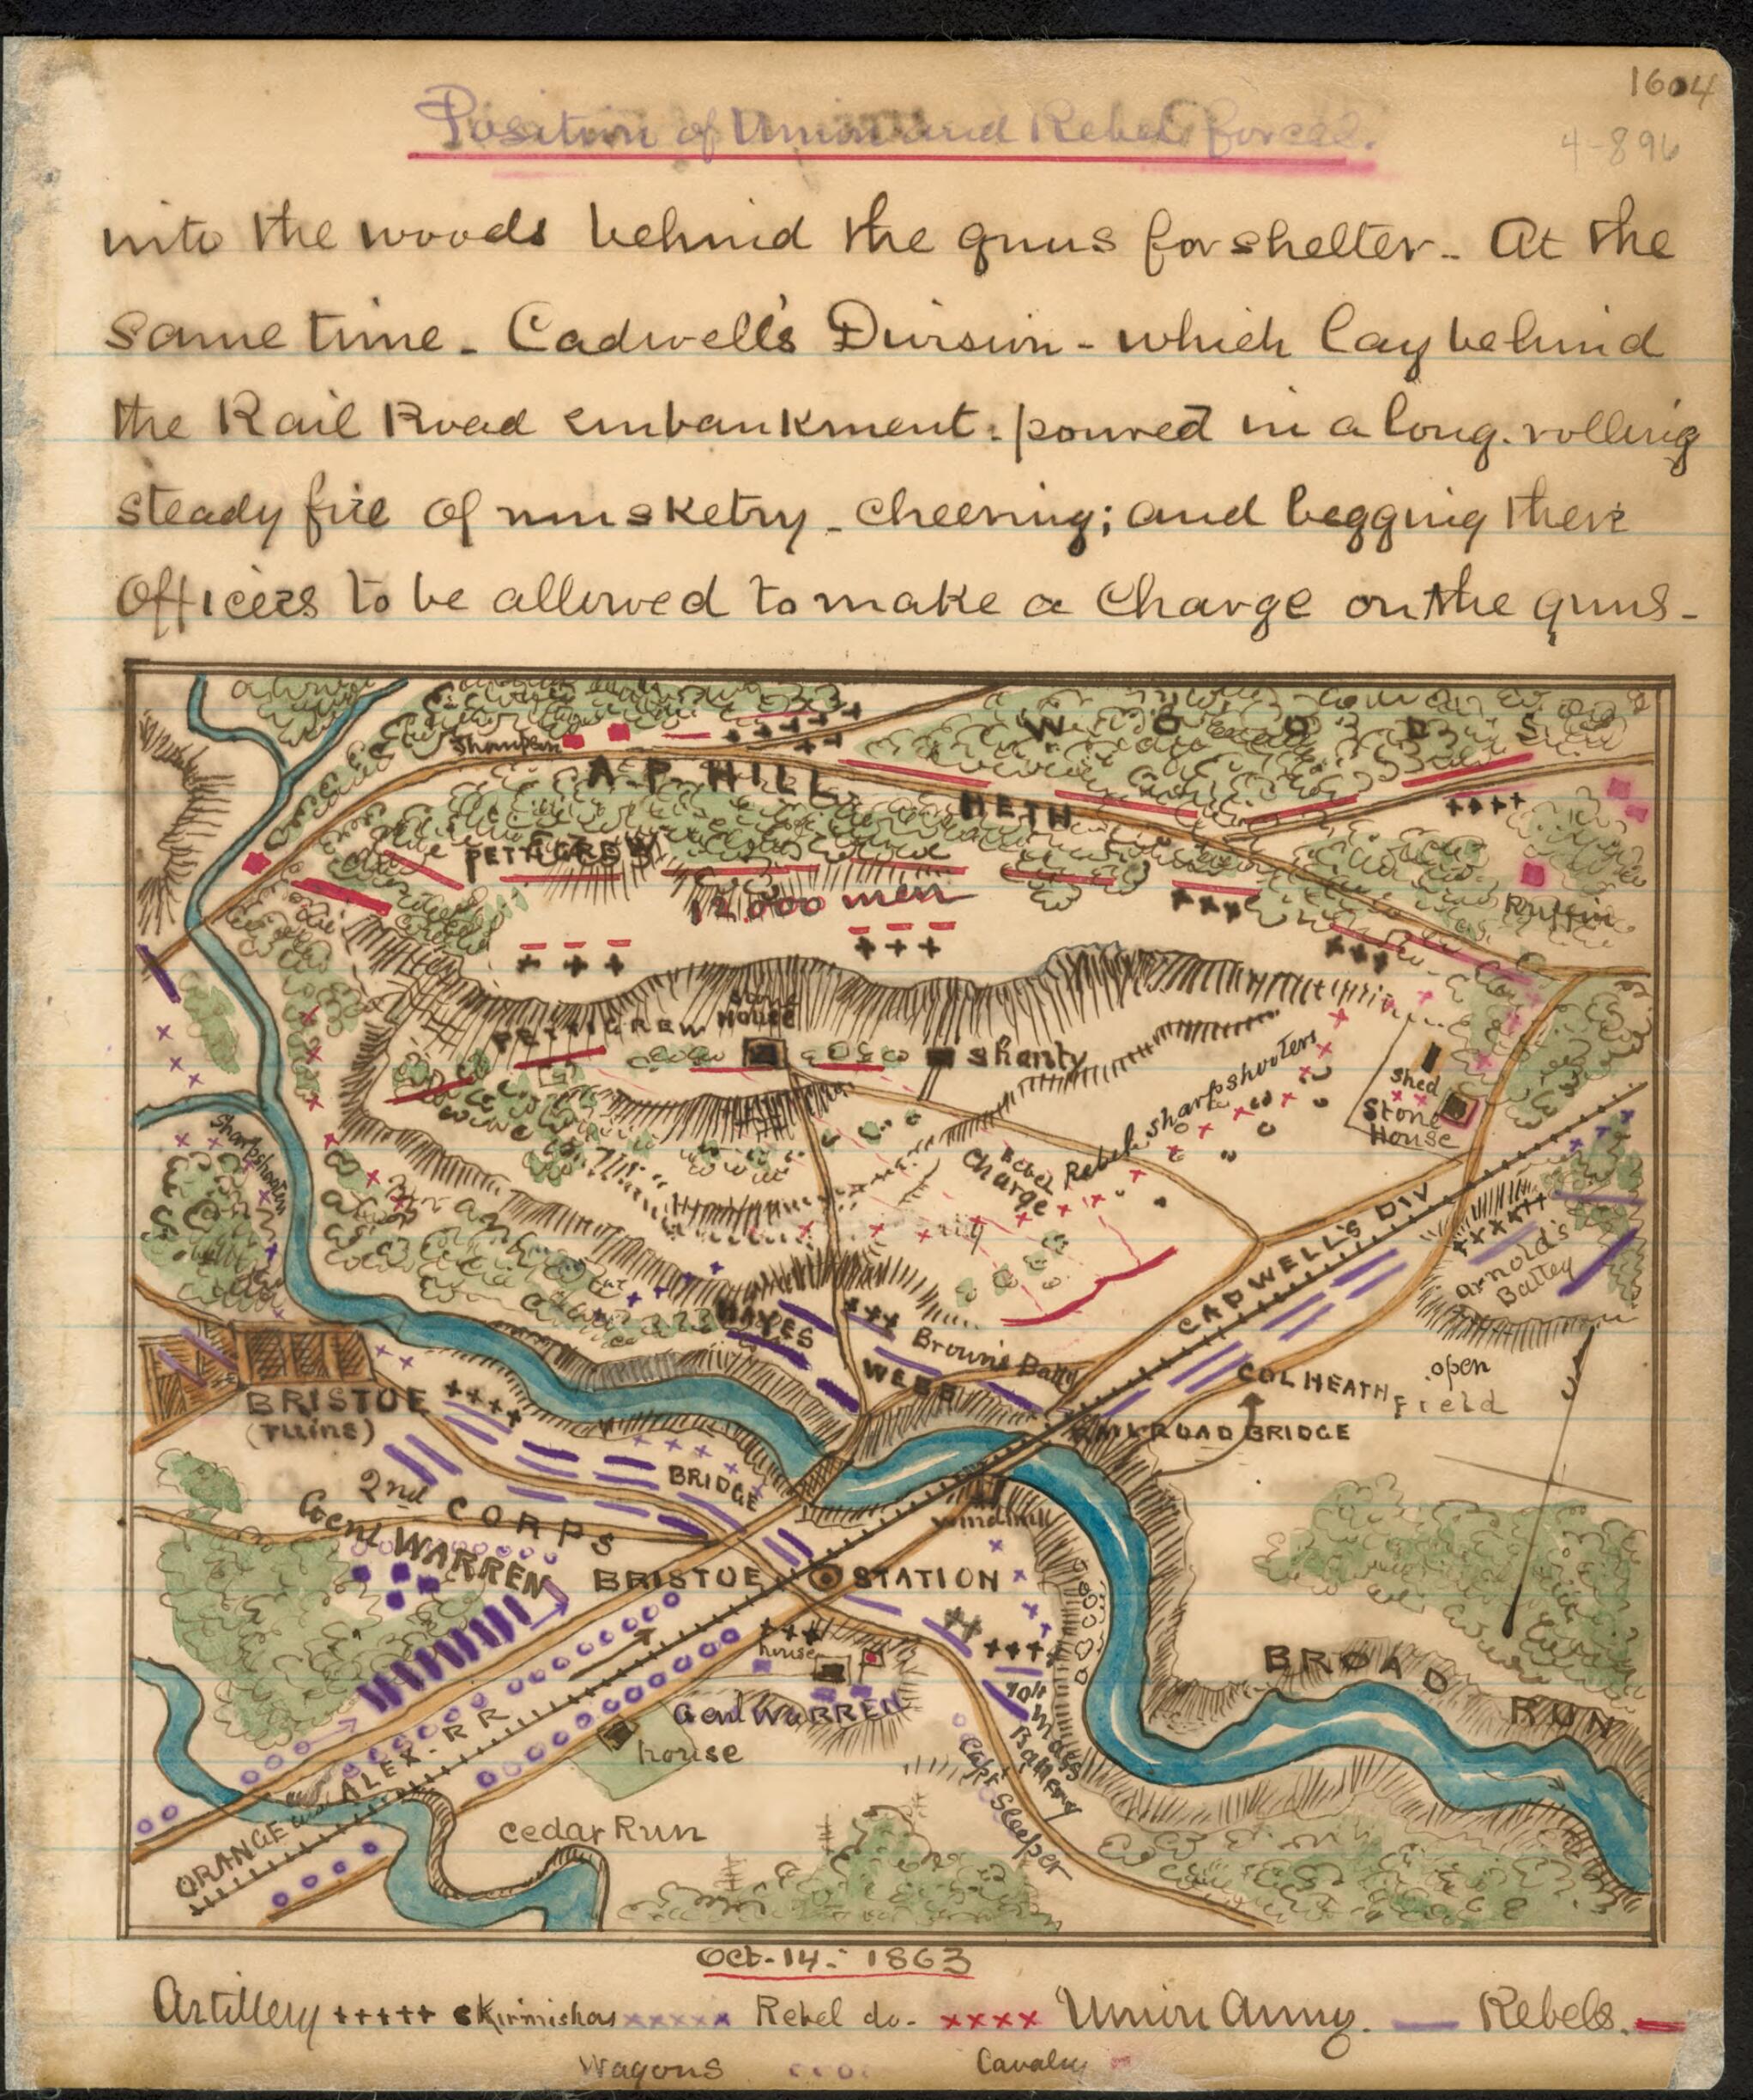 1604
4-896
Position of Union and Rebel forces.
into the woods behind the guns for shelter.. At the
same time - Cadwell's Division - which lay behind
the Rail Road embankment: poured in a long. rolling
steady fire of musketry - cheering; and begging their
Officers to be allowed to make a Charge on the guns -
WOODS
A.P. HILL
HETH
PETTIGREW
12.000 men
Ruffin
Stone
House
PETTIGREW
Shanty
Shed
Stone
House
Rebel sharpshooters
Rebel
Charge
Sharpshooters
CADWELL'S DIV
Arnold's
Battey
HAYES
Brown's Batty
WEBB
open
Field
COL HEATH
RAILROAD BRIDGE
BRISTOE
(ruins)
BRIDGE
2nd CORPS
Genl WARREN
windmill
BRISTOE STATION
BROAD RUN
house
Genl WARREN
house
10th Mass
Battery
Capt Sleeper
ORANGE and ALEX-RR
Cedar Run
Oct-14-1863
Artillery +++++ Skirmishers xxxxxx Rebel do- xxxx Union Army. — Rebels. —
Wagons Cavalry